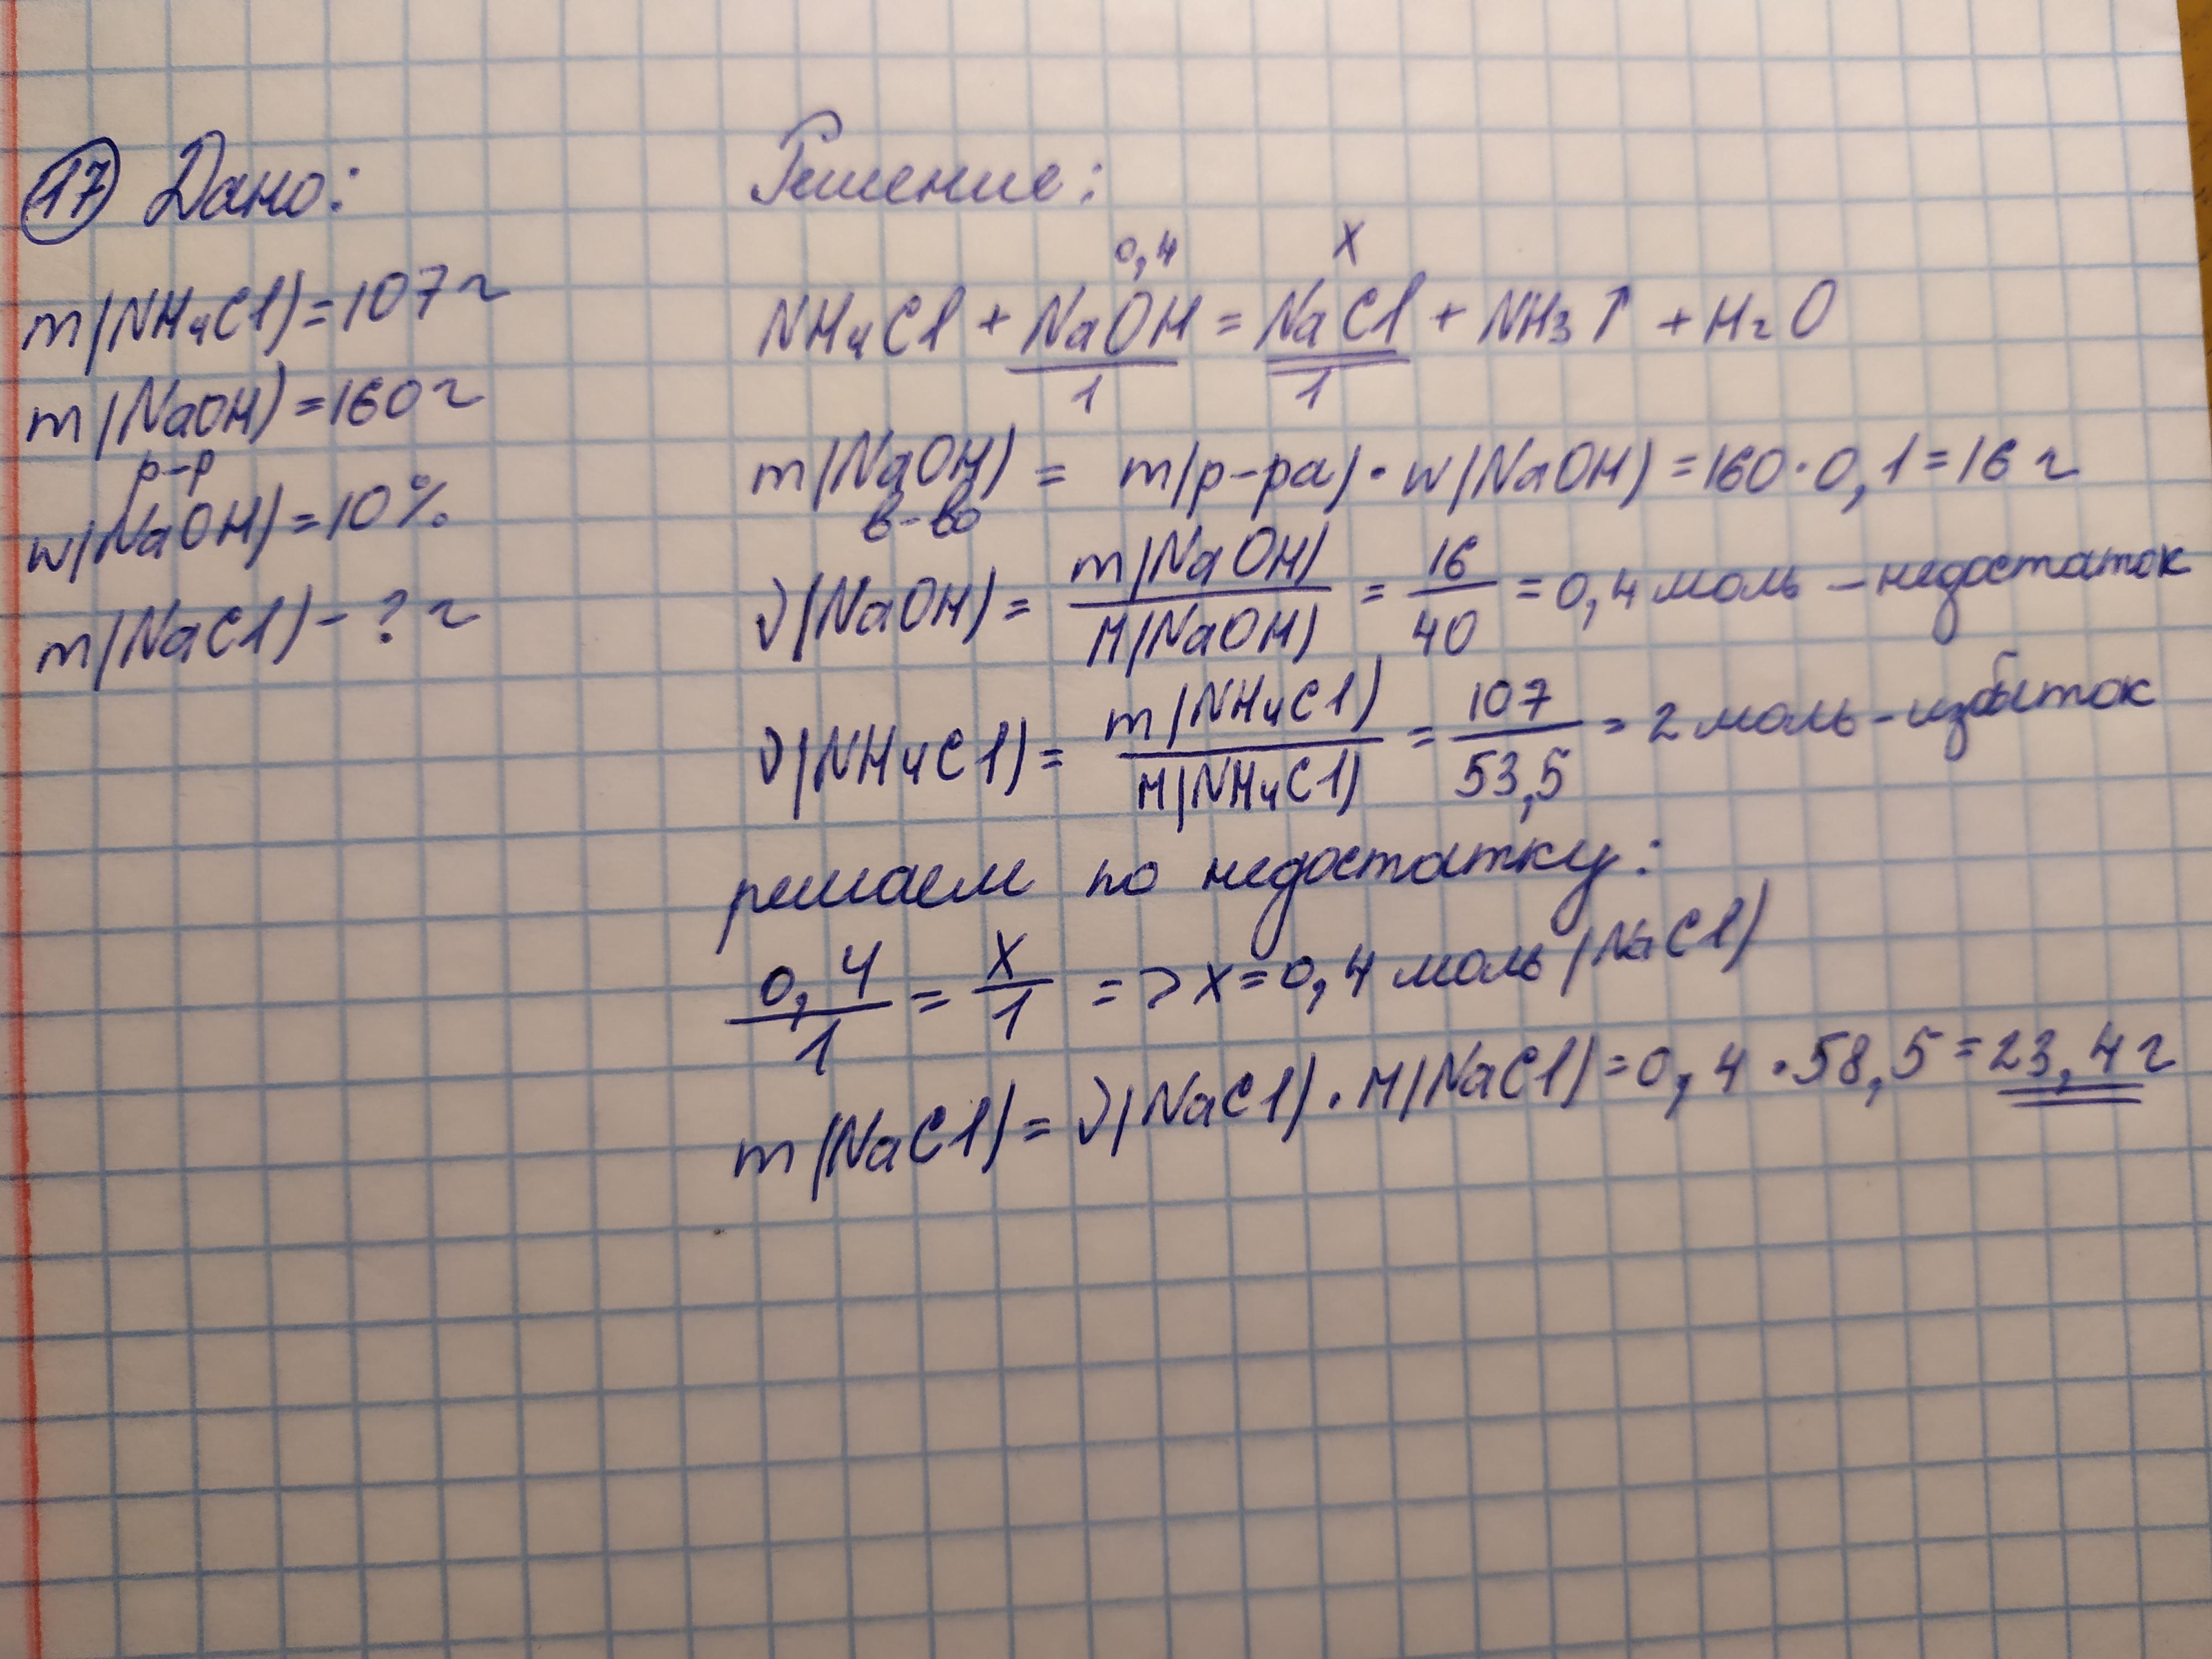 17 Дано:
m(NH4Cl)=107г
m(NaOH)=160г
р-р
w(NaOH)=10%
m(NaCl)-?г
Решение:
0,4 x
NH4Cl + NaOH = NaCl + NH3↑ + H2O
1 1
m(NaOH) = m(р-ра)·w(NaOH)=160·0,1=16г
в-во
ν(NaOH)= m(NaOH)/M(NaOH) = 16/40 =0,4 моль – недостаток
ν(NH4Cl)= m(NH4Cl)/M(NH4Cl) = 107/53,5 = 2 моль – избыток
решаем по недостатку:
0,4/1 = x/1 => x=0,4 моль (NaCl)
m(NaCl)= ν(NaCl)·M(NaCl)=0,4·58,5=23,4г